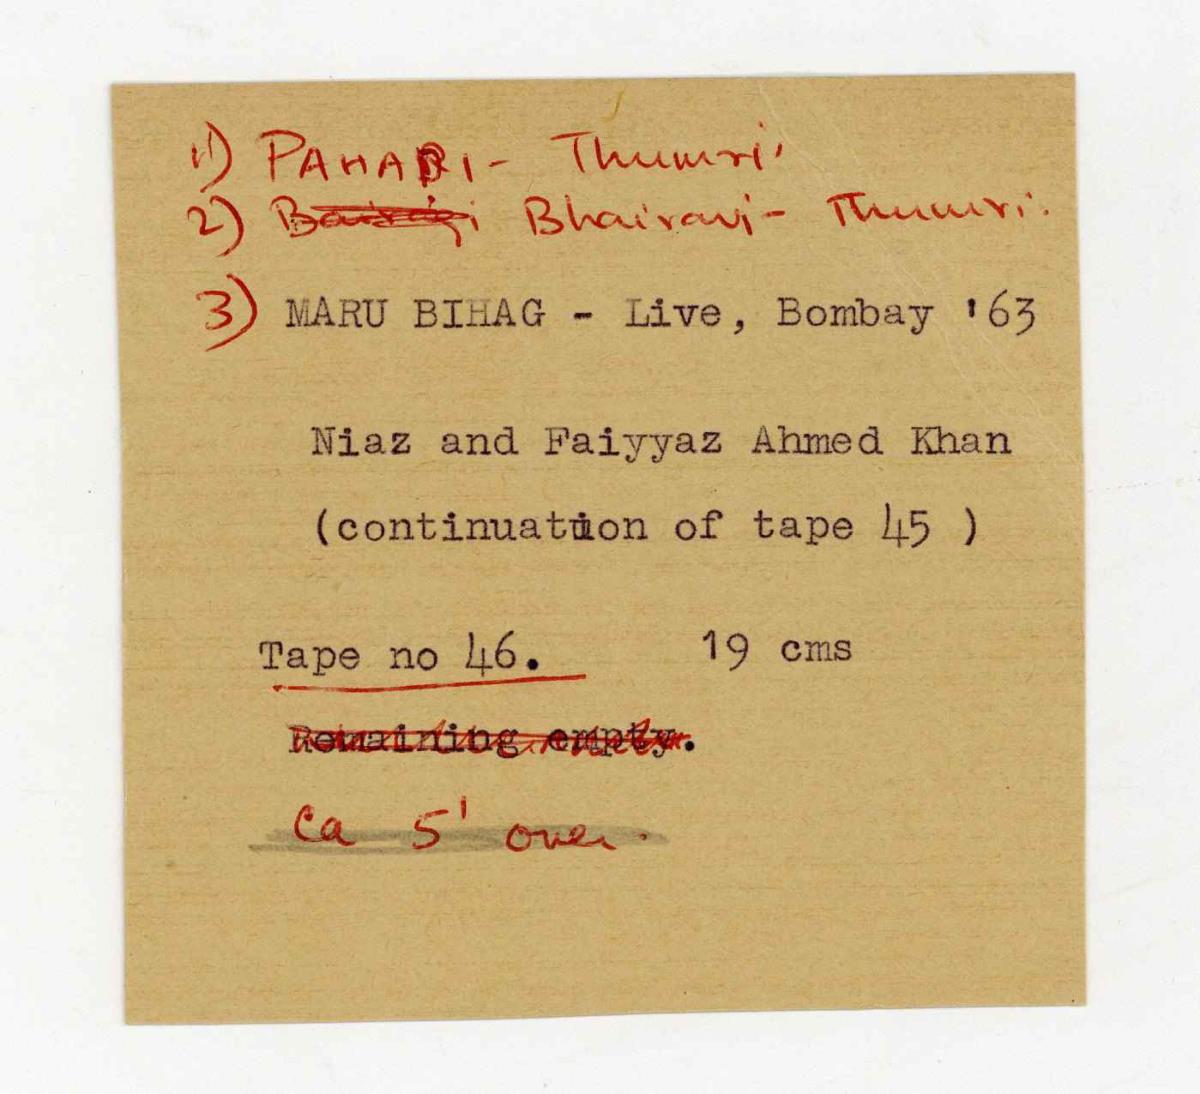 1) PAHARI - Thumri
2) Bhairavi - Thumri.
3) MARU BIHAG - Live, Bombay '63
Niaz and Faiyyaz Ahmed Khan
(continuation of tape 45 )
Tape no 46. 19 cms
Remaining empty.
Ca 5' over.